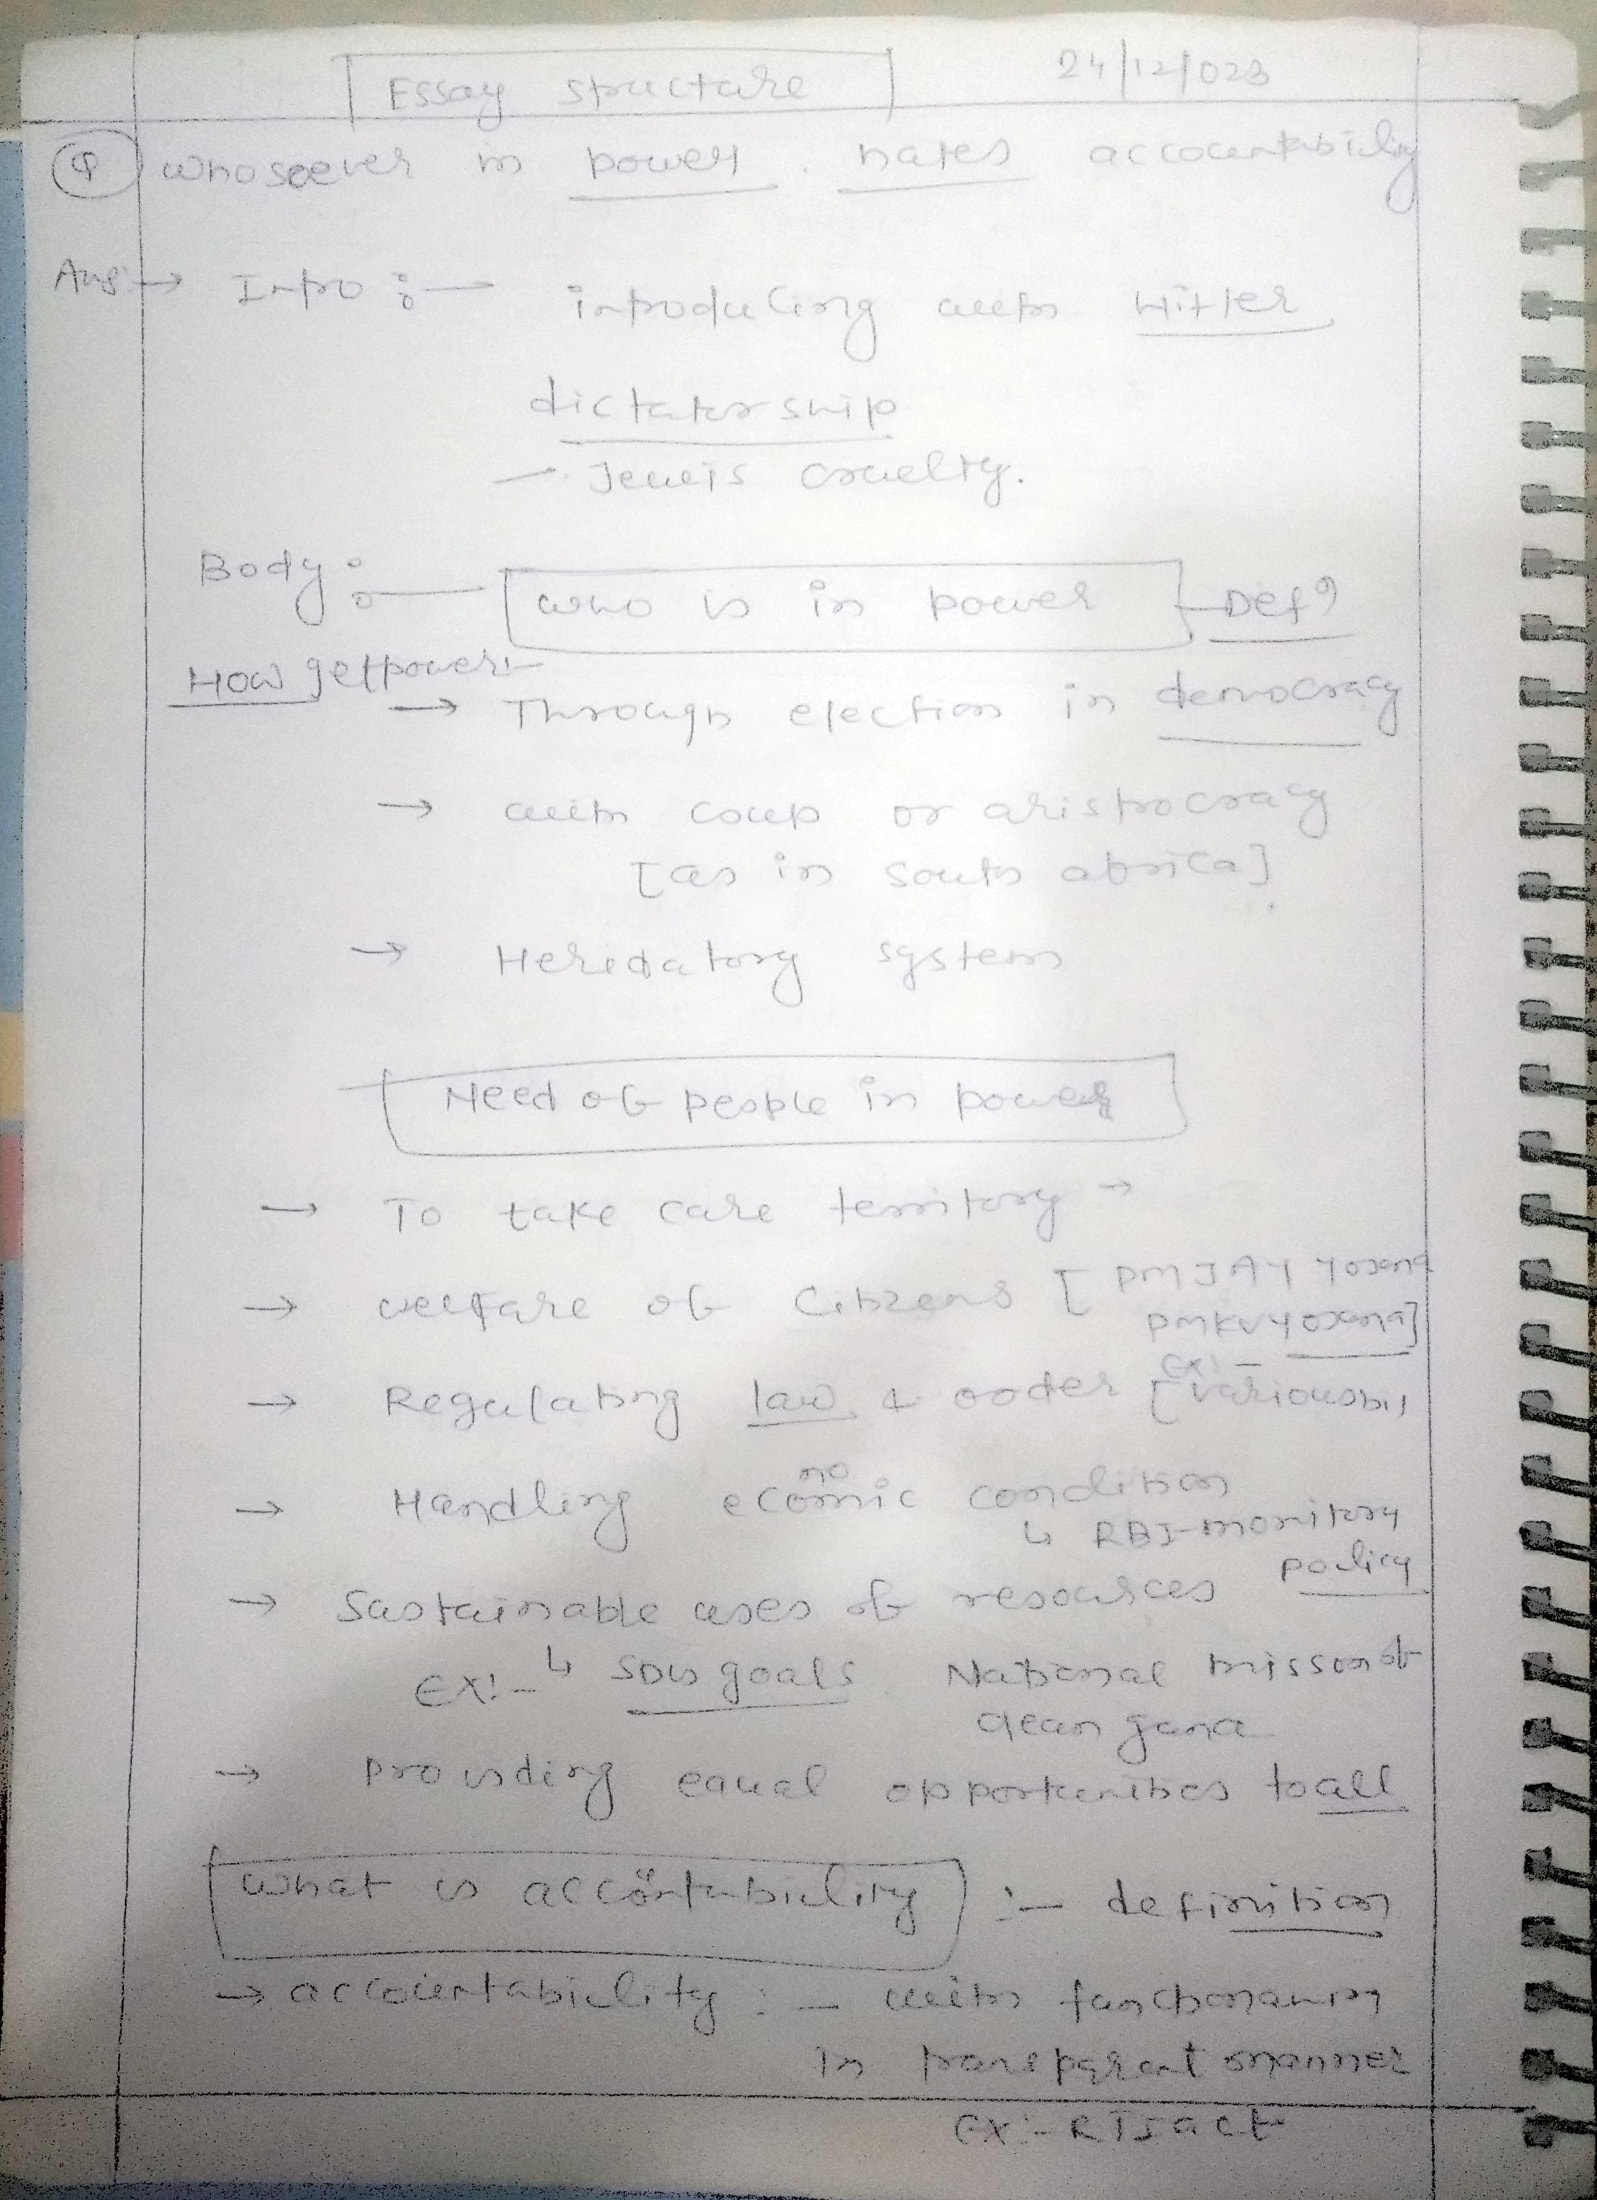 Essay structure
24/12/023
Q whosoever in power hates accountability
Ans → Intro :- introducing with Hitler
dictatorship
- Jeweis cruelty.
Body :- who is in power - Defn
How get power :-
→ Through election in democracy
→ with coup or aristrocracy
[as in south africa]
→ Heredatory system
Need of people in power
→ To take care territory →
→ welfare of citizens [PMJAY Yojana
PMKVYojana]
→ Regulating law & order [ex:- various bil
→ Handling economic condition
↳ RBI-monitory
policy
→ Sustainable uses of resources
Ex:- ↳ SDG goals National misson of
clean ganga
→ providing equal opportunities to all
what is accountubiility :- definition
→ accountabiility :- with functioning
in transparent manner
Ex:- RTI act